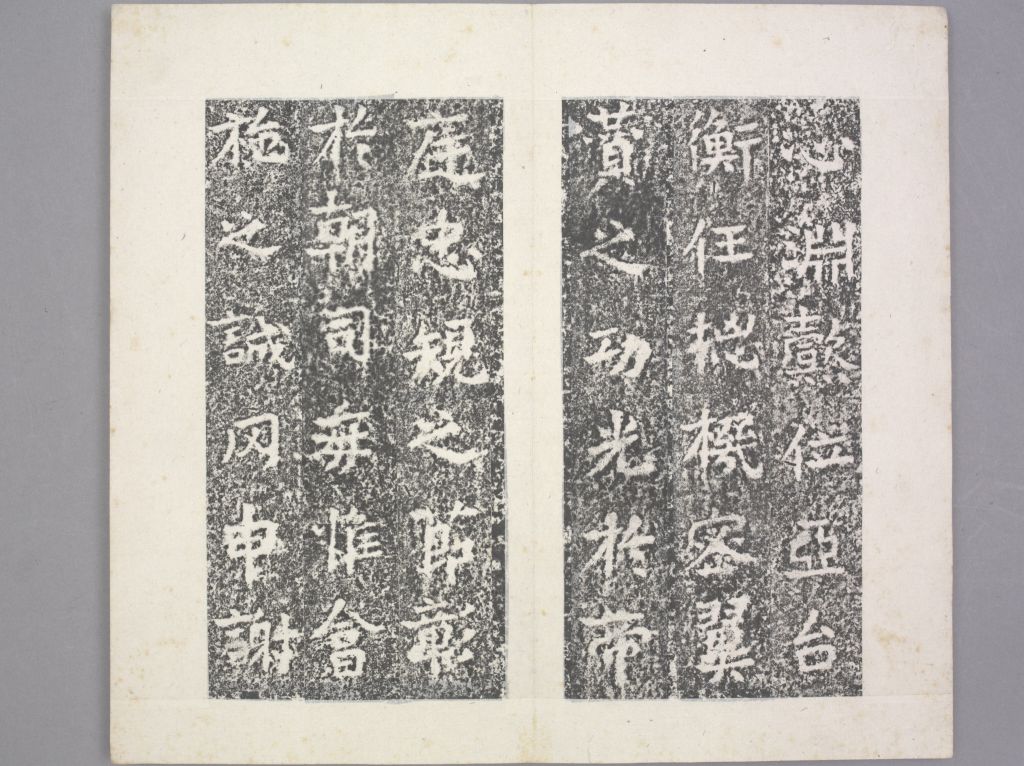 心淵懿位亞台
衡任揔機密翼
贊之功光於帝
庭忠規之節
於朝司每惟會
之誠罔申謝